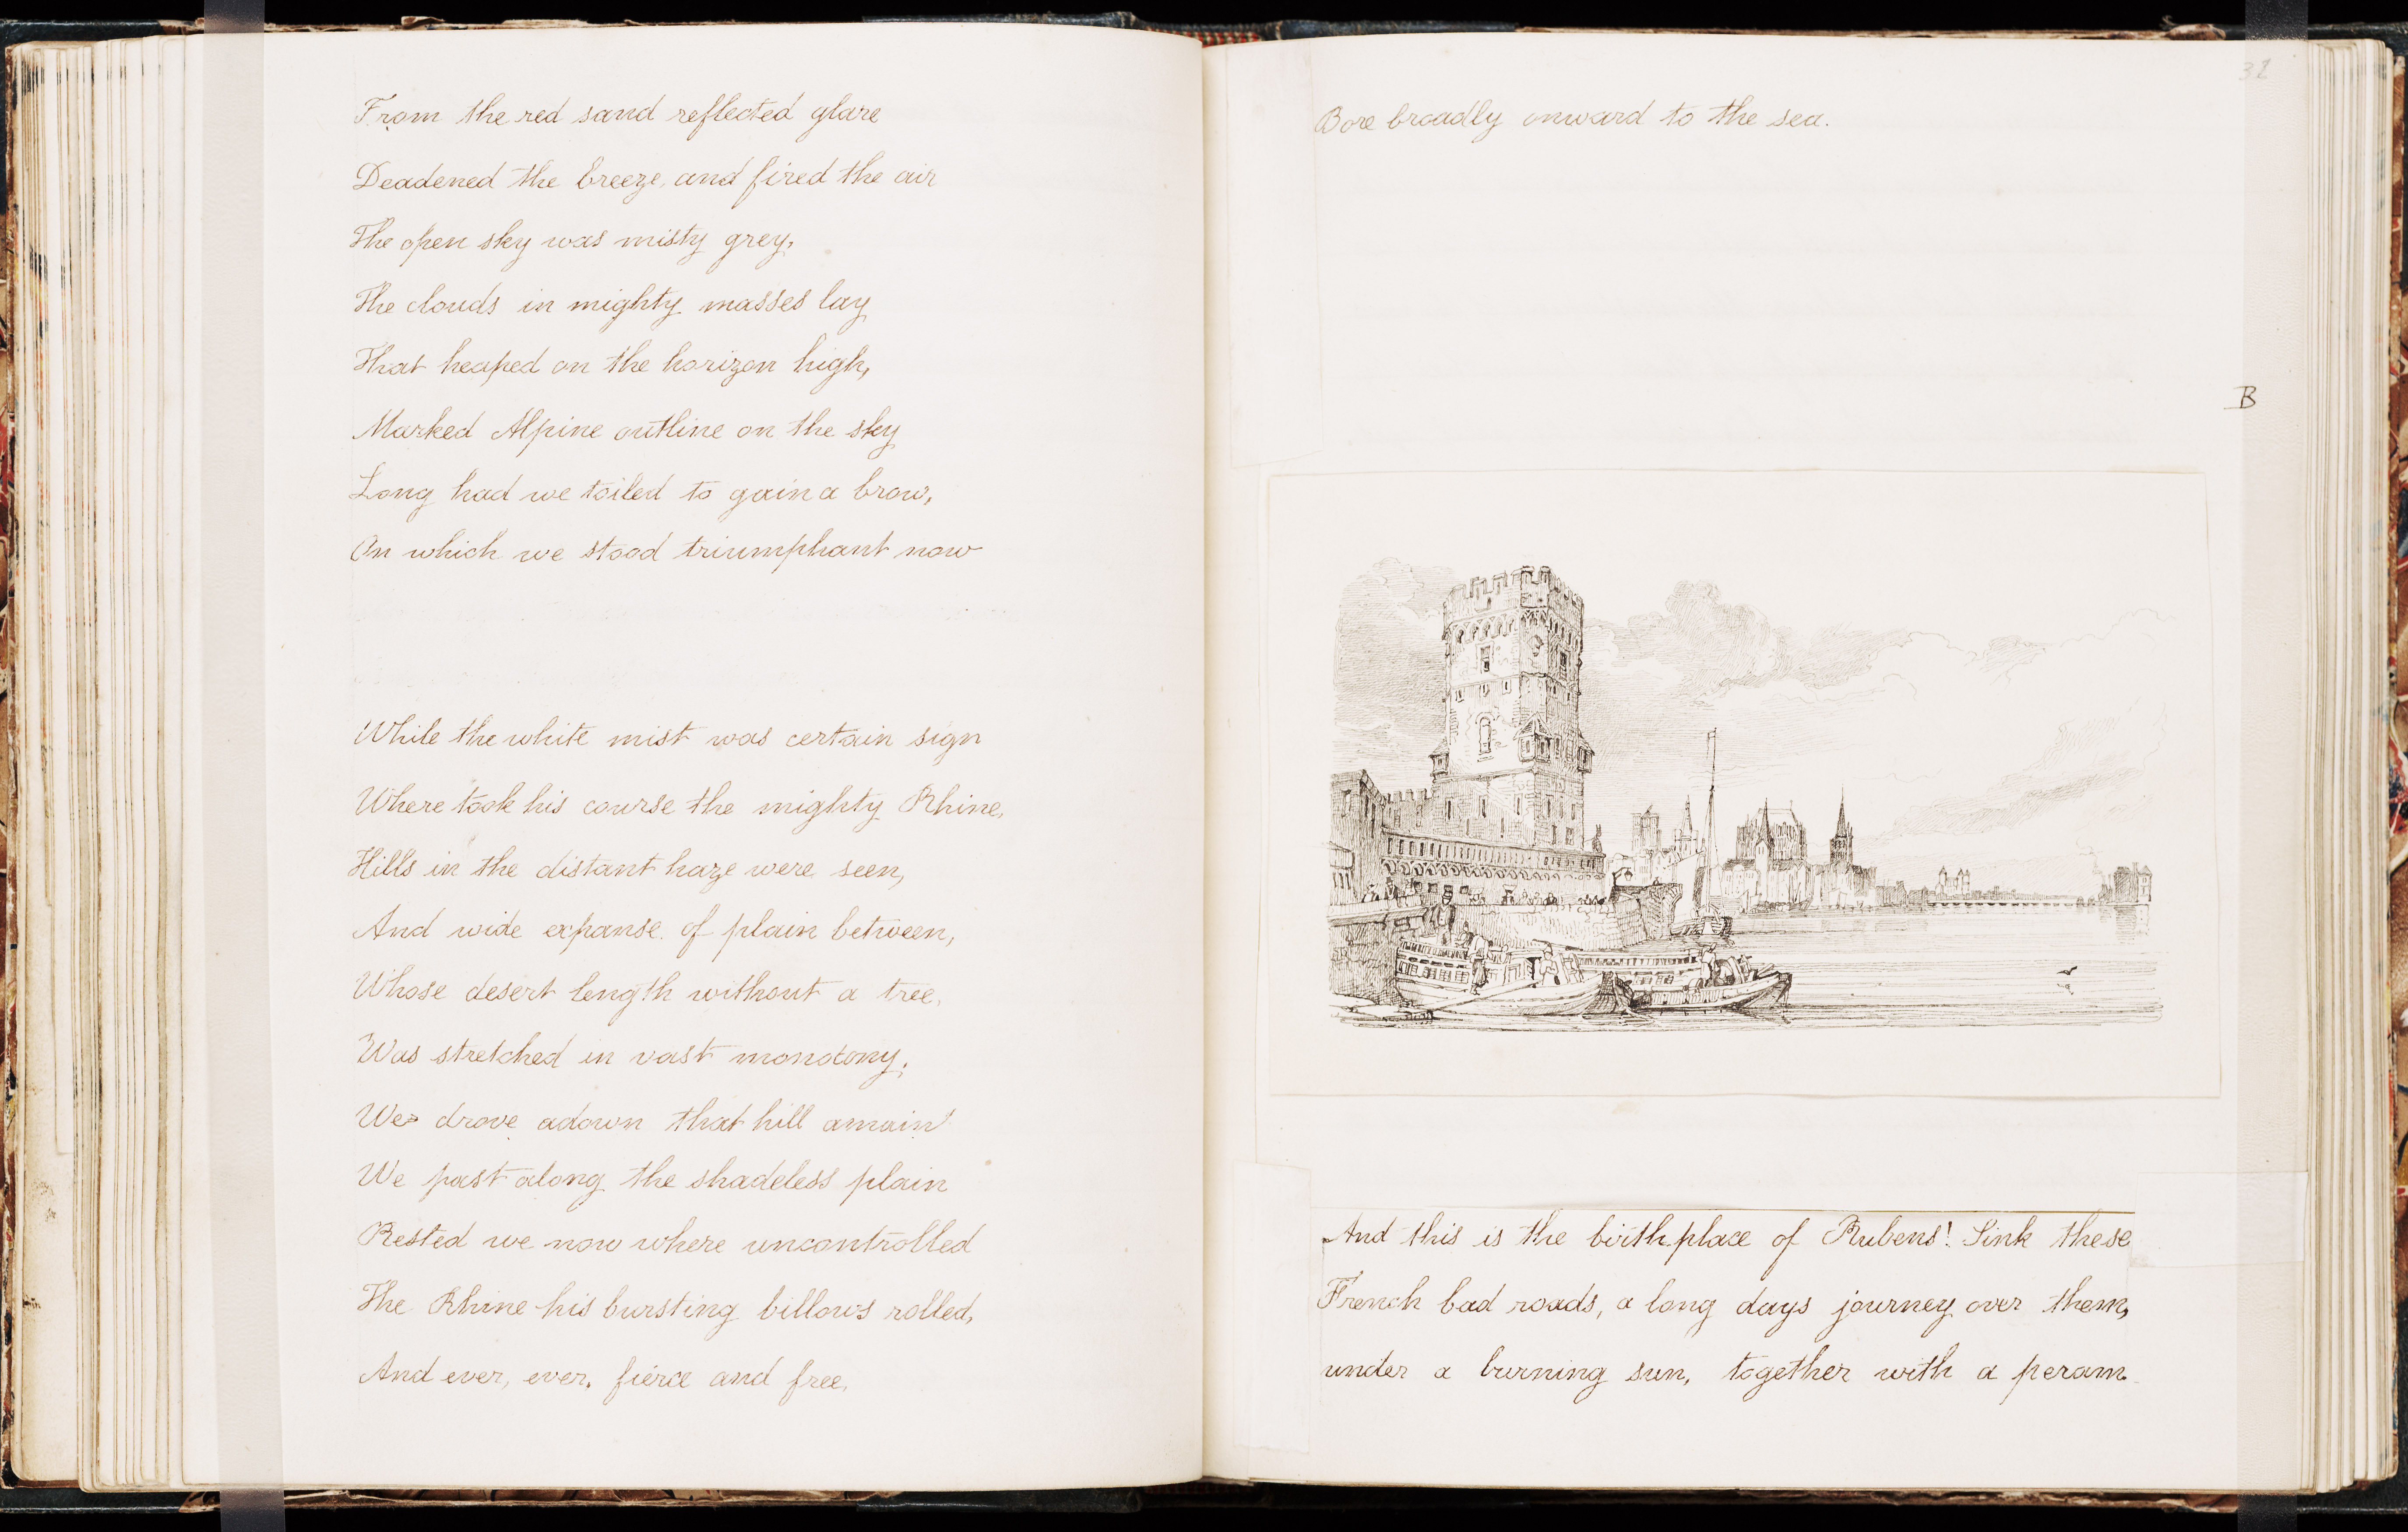 From the red sand reflected glare
Deadened the breeze, and fired the air
The open sky was misty grey,
The clouds in mighty masses lay
That heaped on the horizon high,
Marked Alpine outline on the sky
Long had we toiled to gain a brow,
On which we stood triumphant now
While the white mist was certain sign
Where took his course the mighty Rhine,
Hills in the distant haze were seen,
And wide expanse of plain between,
Whose desert length without a tree,
Was stretched in vast monotony.
We drove adown that hill amain
We past along the shadeless plain
Rested we now where uncontrolled
The Rhine his bursting billows rolled,
And ever, ever, fierce and free,
32
Bore broadly onward to the sea.
B
And this is the birthplace of Rubens! Sink these
French bad roads, a long days journey over them,
under a burning sun, together with a peram